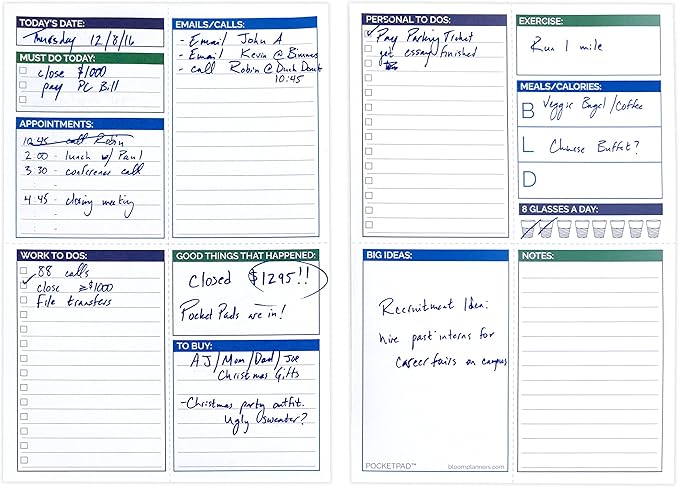 TODAY'S DATE:
Thursday 12/8/16
MUST DO TODAY:
close $1000
pay PC Bill
APPOINTMENTS:
10 45 call Robin
2 00 - lunch w/ Paul
3 30 - conference call
4 45 - closing meeting
EMAILS/CALLS:
- Email John A
- Email Kevin @ Binmes
- call Robin @ Dunk Donut
10:45
WORK TO DOS:
88 calls
close ≥$1000
File transfers
GOOD THINGS THAT HAPPENED:
closed $1295!!
Pocket Pads are in!
TO BUY:
AJ/Mom/Dad/Joe
Christmas Gifts
- Christmas party outfit.
Ugly sweater?
PERSONAL TO DOS:
Pay Parking Ticket
get essay finished
EXERCISE:
Run 1 mile
MEALS/CALORIES:
B Veggie Bagel/Coffee
L Chinese Buffet?
D
8 GLASSES A DAY:
BIG IDEAS:
Recruitment Idea:
hire past interns for
career fairs on campus
POCKETPAD™
bloomplanners.com
NOTES: